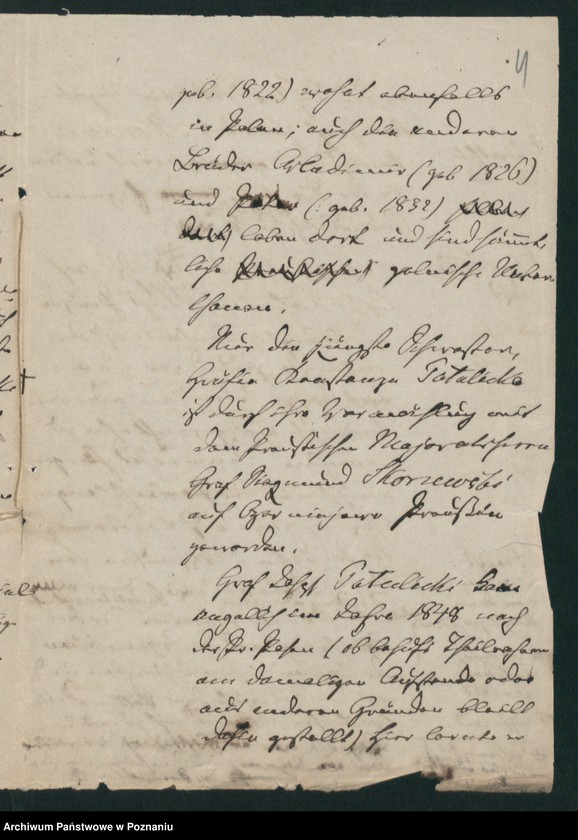 4
geb. 1822) wohnt ebenfalls
in Polen; auch die anderen
Brüder Wladimir (geb 1826)
und Peter (: geb. 1832)
leben dort und sind sämmt-
liche polnische Unter-
thanen.
Nur die jüngste Schwester,
Gräfin Konstanze Potulicka
ist durch ihre Vermählung mit
dem Preußischen Majoratsherrn
Graf Sigmund Skorzewski
auf Czerniejewo Preußin
geworden.
Graf Josef Potulicki kam
angeblich im Jahre 1848 nach
der Pr. Posen (ob behufs Theilnahme
am damaligen Aufstande oder
aus anderen Gründen bleibt
dahin gestellt) hier lernte er
Archiwum Państwowe w Poznaniu